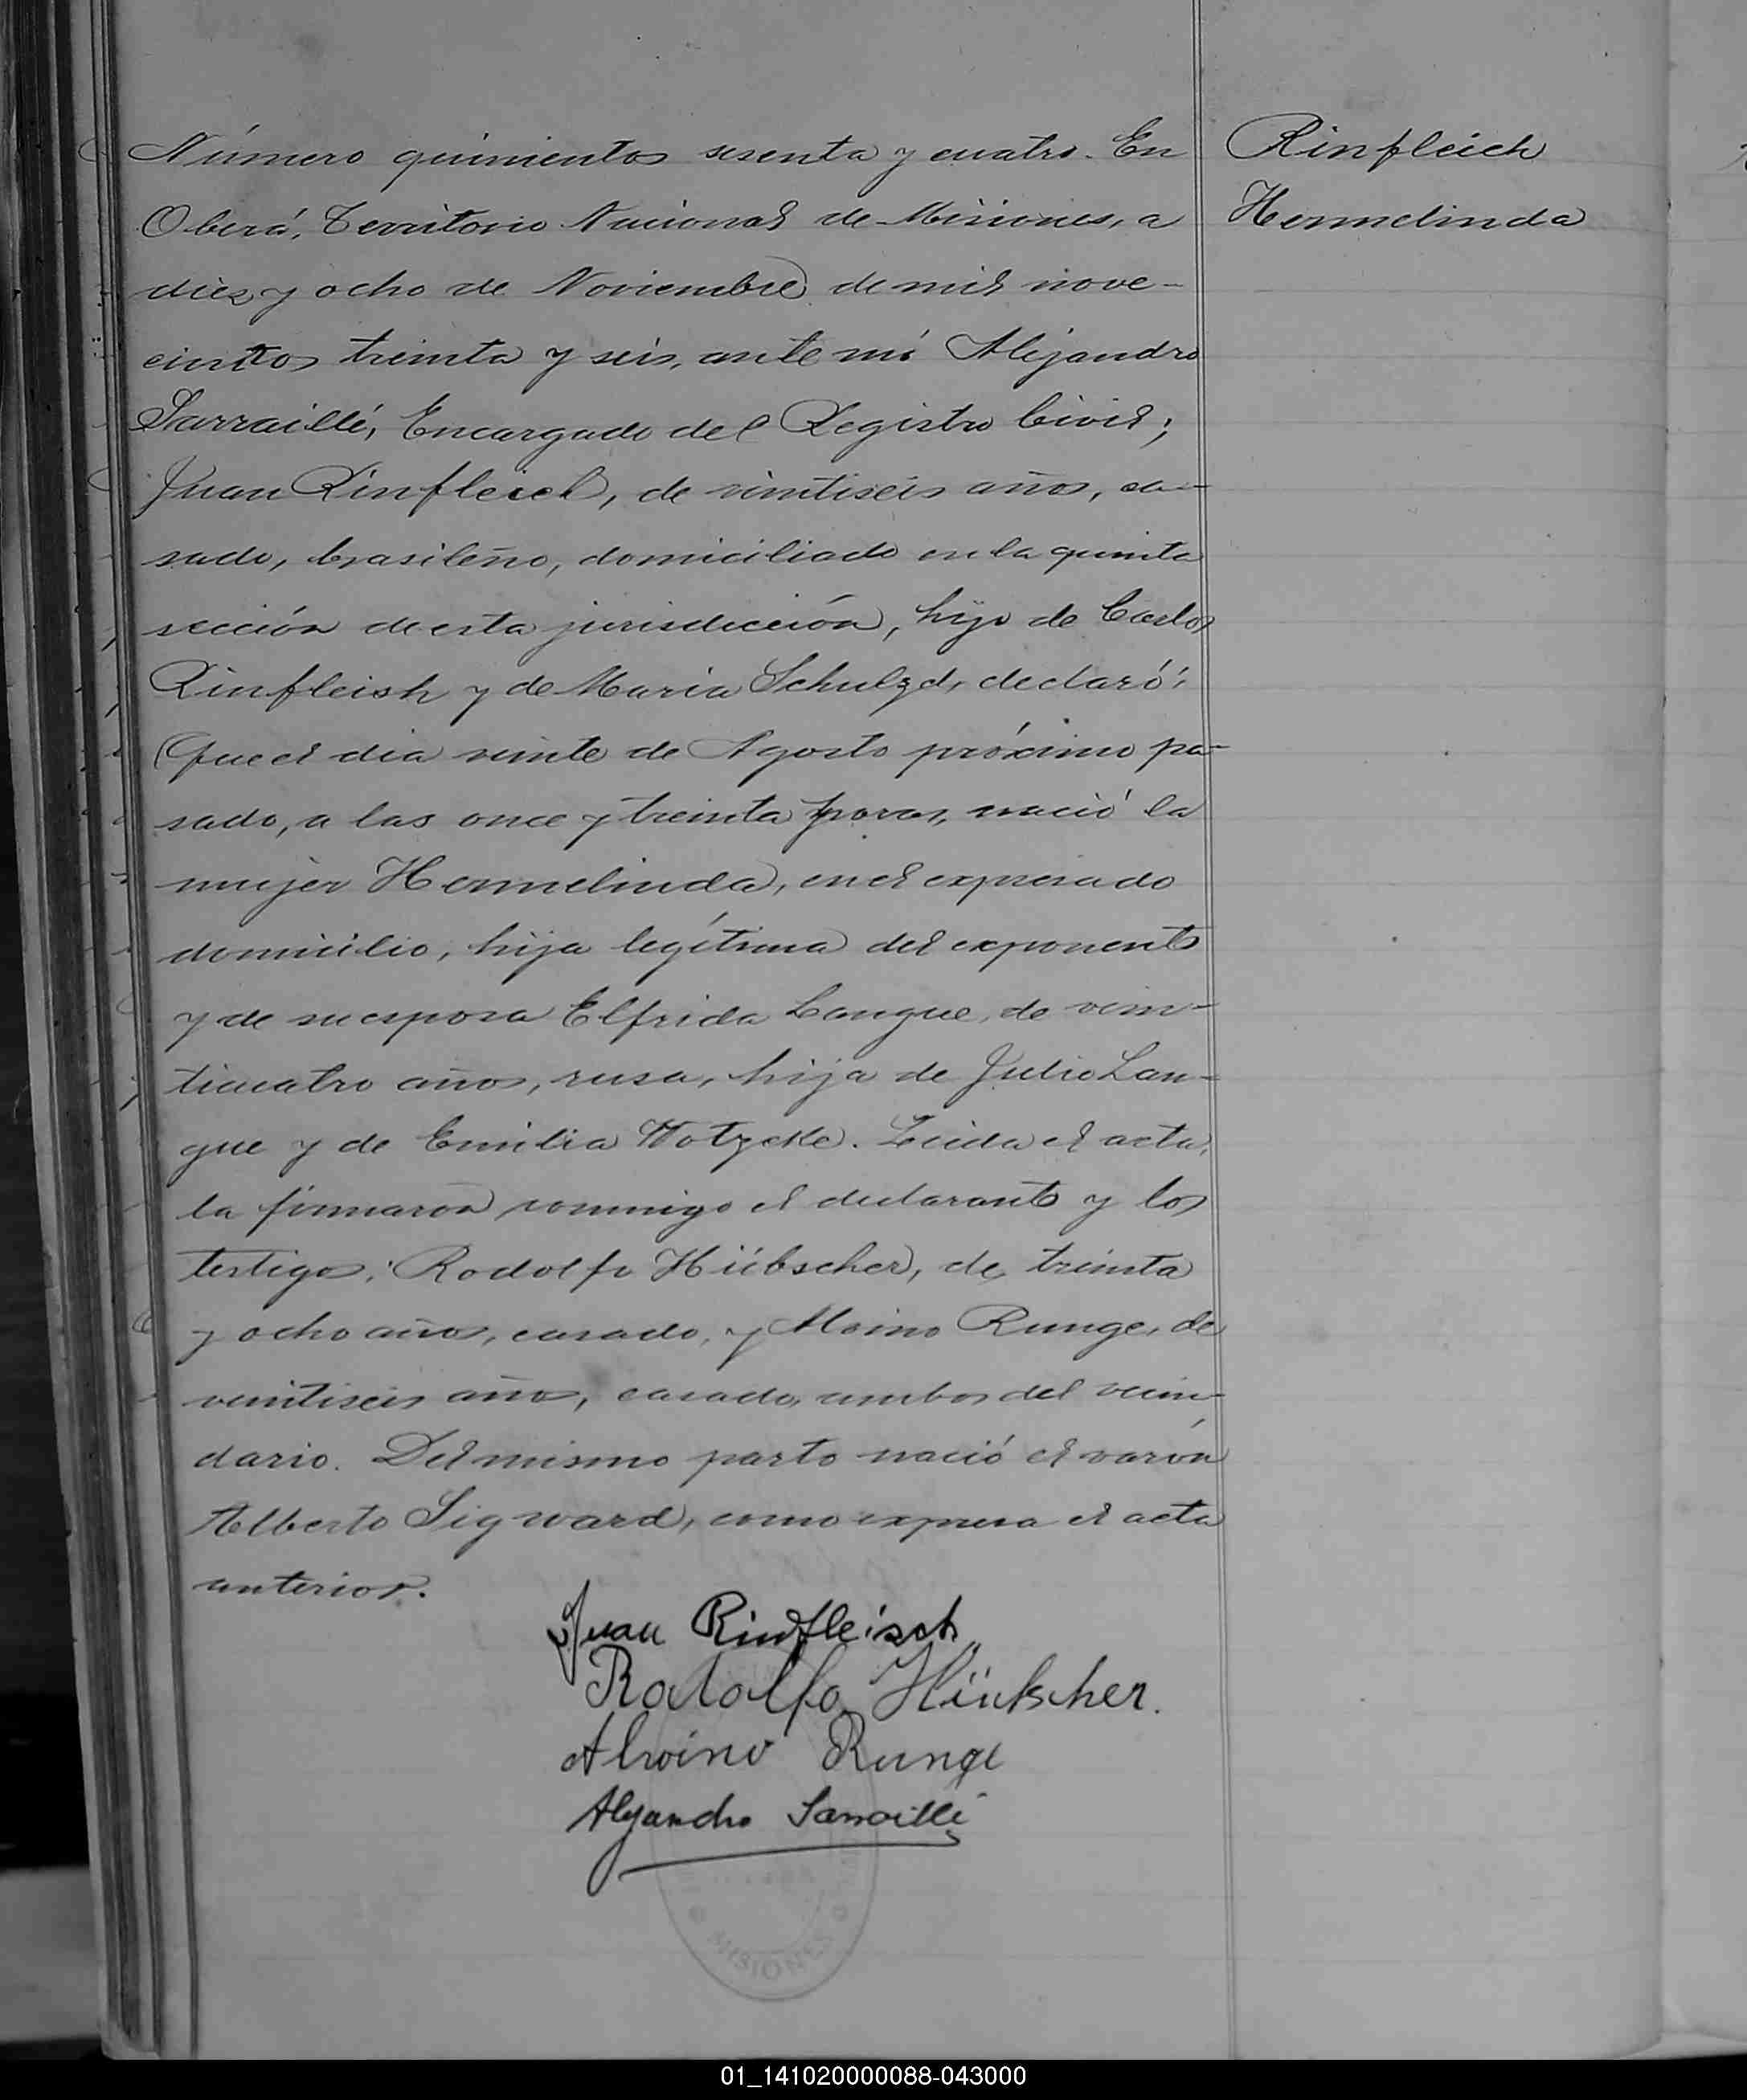 Número quinientos sesenta y cuatro. En
Oberá, Territorio Nacional de Misiones, a
diez y ocho de Noviembre de mil nove-
cientos treinta y seis, ante mí Alejandro
Sarraillé, Encargado del Registro Civil;
Juan Rinfleich, de vintiseis años, ca-
sado, brasileño, domiciliado en la quinta
sección de esta jurisdicción, hijo de Carlos
Rinfleish y de Maria Schulzd, declaró:
Que el dia veinte de Agosto próximo pa-
sado, a las once y treinta horas, nació la
mujer Hermelinda, en el expresado
domicilio, hija legítima del exponente
y de su esposa Elfrida Langue, de vein-
ticuatro años, rusa, hija de Julio Lan-
gue y de Emilia Wotzcke. Leida el acta,
la firmaron conmigo el declarante y los
testigos: Rodolfo Hübscher, de treinta
y ocho años, casado, y Alvino Runge, de
veintiseis años, casado, ambos del vecin-
dario. Del mismo parto nació el varón
Alberto Sigward, como expresa el acta
anterior.
Juan Rinfleisch
Rodolfo Hübscher.
Alwino Runge
Alejandro Sarraillé
MISIONES
Rinfleich
Hermelinda
01_141020000088-043000